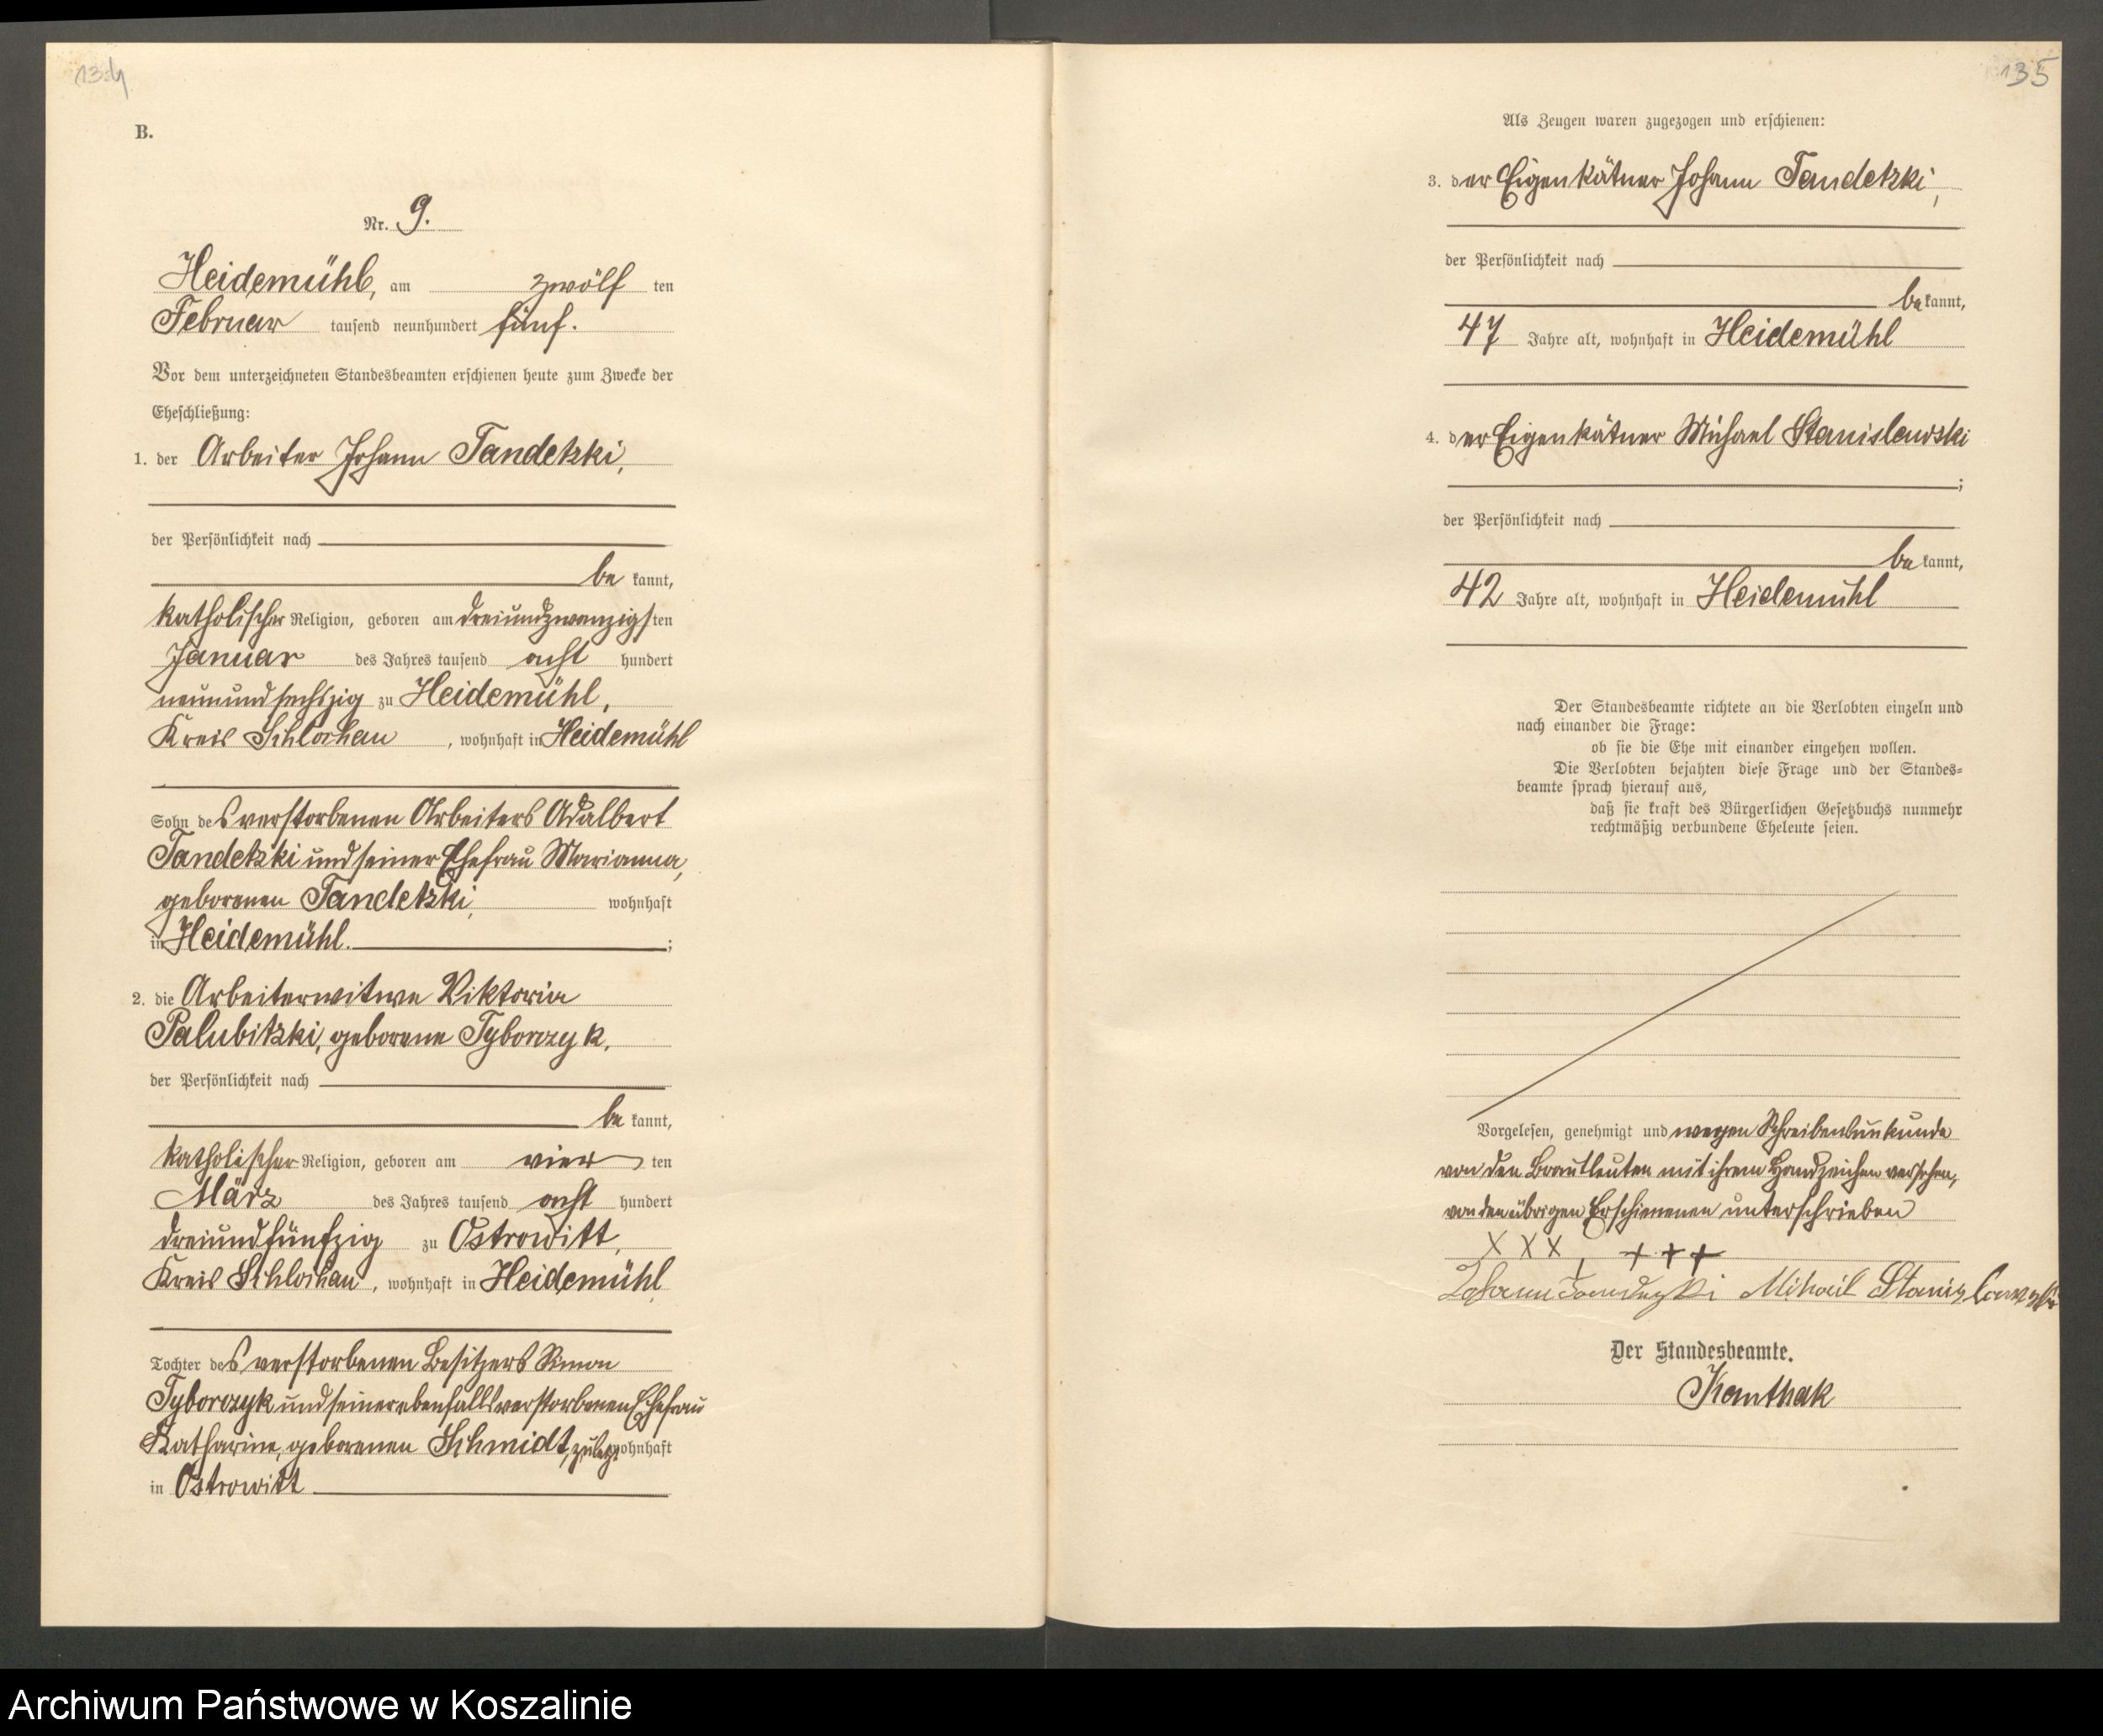 134
B.
Nr. 9.
Heidemühl, am zwölf ten
Februar tausend neunhundert fünf.
Vor dem unterzeichneten Standesbeamten erschienen heute zum Zwecke der
Eheschließung:
1. der Arbeiter Johann Tandetzki,
der Persönlichkeit nach
be kannt,
katholischer Religion, geboren am dreiundzwanzigsten
Januar des Jahres tausend acht hundert
neunundsechszig zu Heidemühl,
Kreis Schlochau, wohnhaft in Heidemühl
Sohn des verstorbenen Arbeiters Adalbert
Tandetzki und seiner Ehefrau Marianna,
geborenen Tandetzki, wohnhaft
in Heidemühl. ;
2. die Arbeiterwitwe Viktoria
Palubitzki, geborene Tyborczyk,
der Persönlichkeit nach
be kannt,
katholischer Religion, geboren am vier ten
März des Jahres tausend acht hundert
dreiundfünfzig zu Ostrowitt,
Kreis Schlochau, wohnhaft in Heidemühl
Tochter des verstorbenen Besitzers Simon
Tyborczyk und seiner ebenfalls verstorbenen Ehefrau
Katharine, geborenen Schmidt, zuletzt wohnhaft
in Ostrowitt
135
Als Zeugen waren zugezogen und erschienen:
3. der Eigenkätner Johann Tandetzki,
der Persönlichkeit nach
be kannt,
47 Jahre alt, wohnhaft in Heidemühl
4. der Eigenkätner Michael Stanislawski
;
der Persönlichkeit nach
be kannt,
42 Jahre alt, wohnhaft in Heidemühl
Der Standesbeamte richtete an die Verlobten einzeln und
nach einander die Frage:
ob sie die Ehe mit einander eingehen wollen.
Die Verlobten bejahten diese Frage und der Standes-
beamte sprach hierauf aus,
daß sie kraft des Bürgerlichen Gesetzbuchs nunmehr
rechtmäßig verbundene Eheleute seien.
Vorgelesen, genehmigt und wegen Schreibensunkunde
von den Brautleuten mit ihrem Handzeichen versehen,
von den übrigen Erschienenen unterschrieben
X X X, + + +
Johann Mihail Stanizlawzki
Der Standesbeamte.
Kanthak
Archiwum Państwowe w Koszalinie